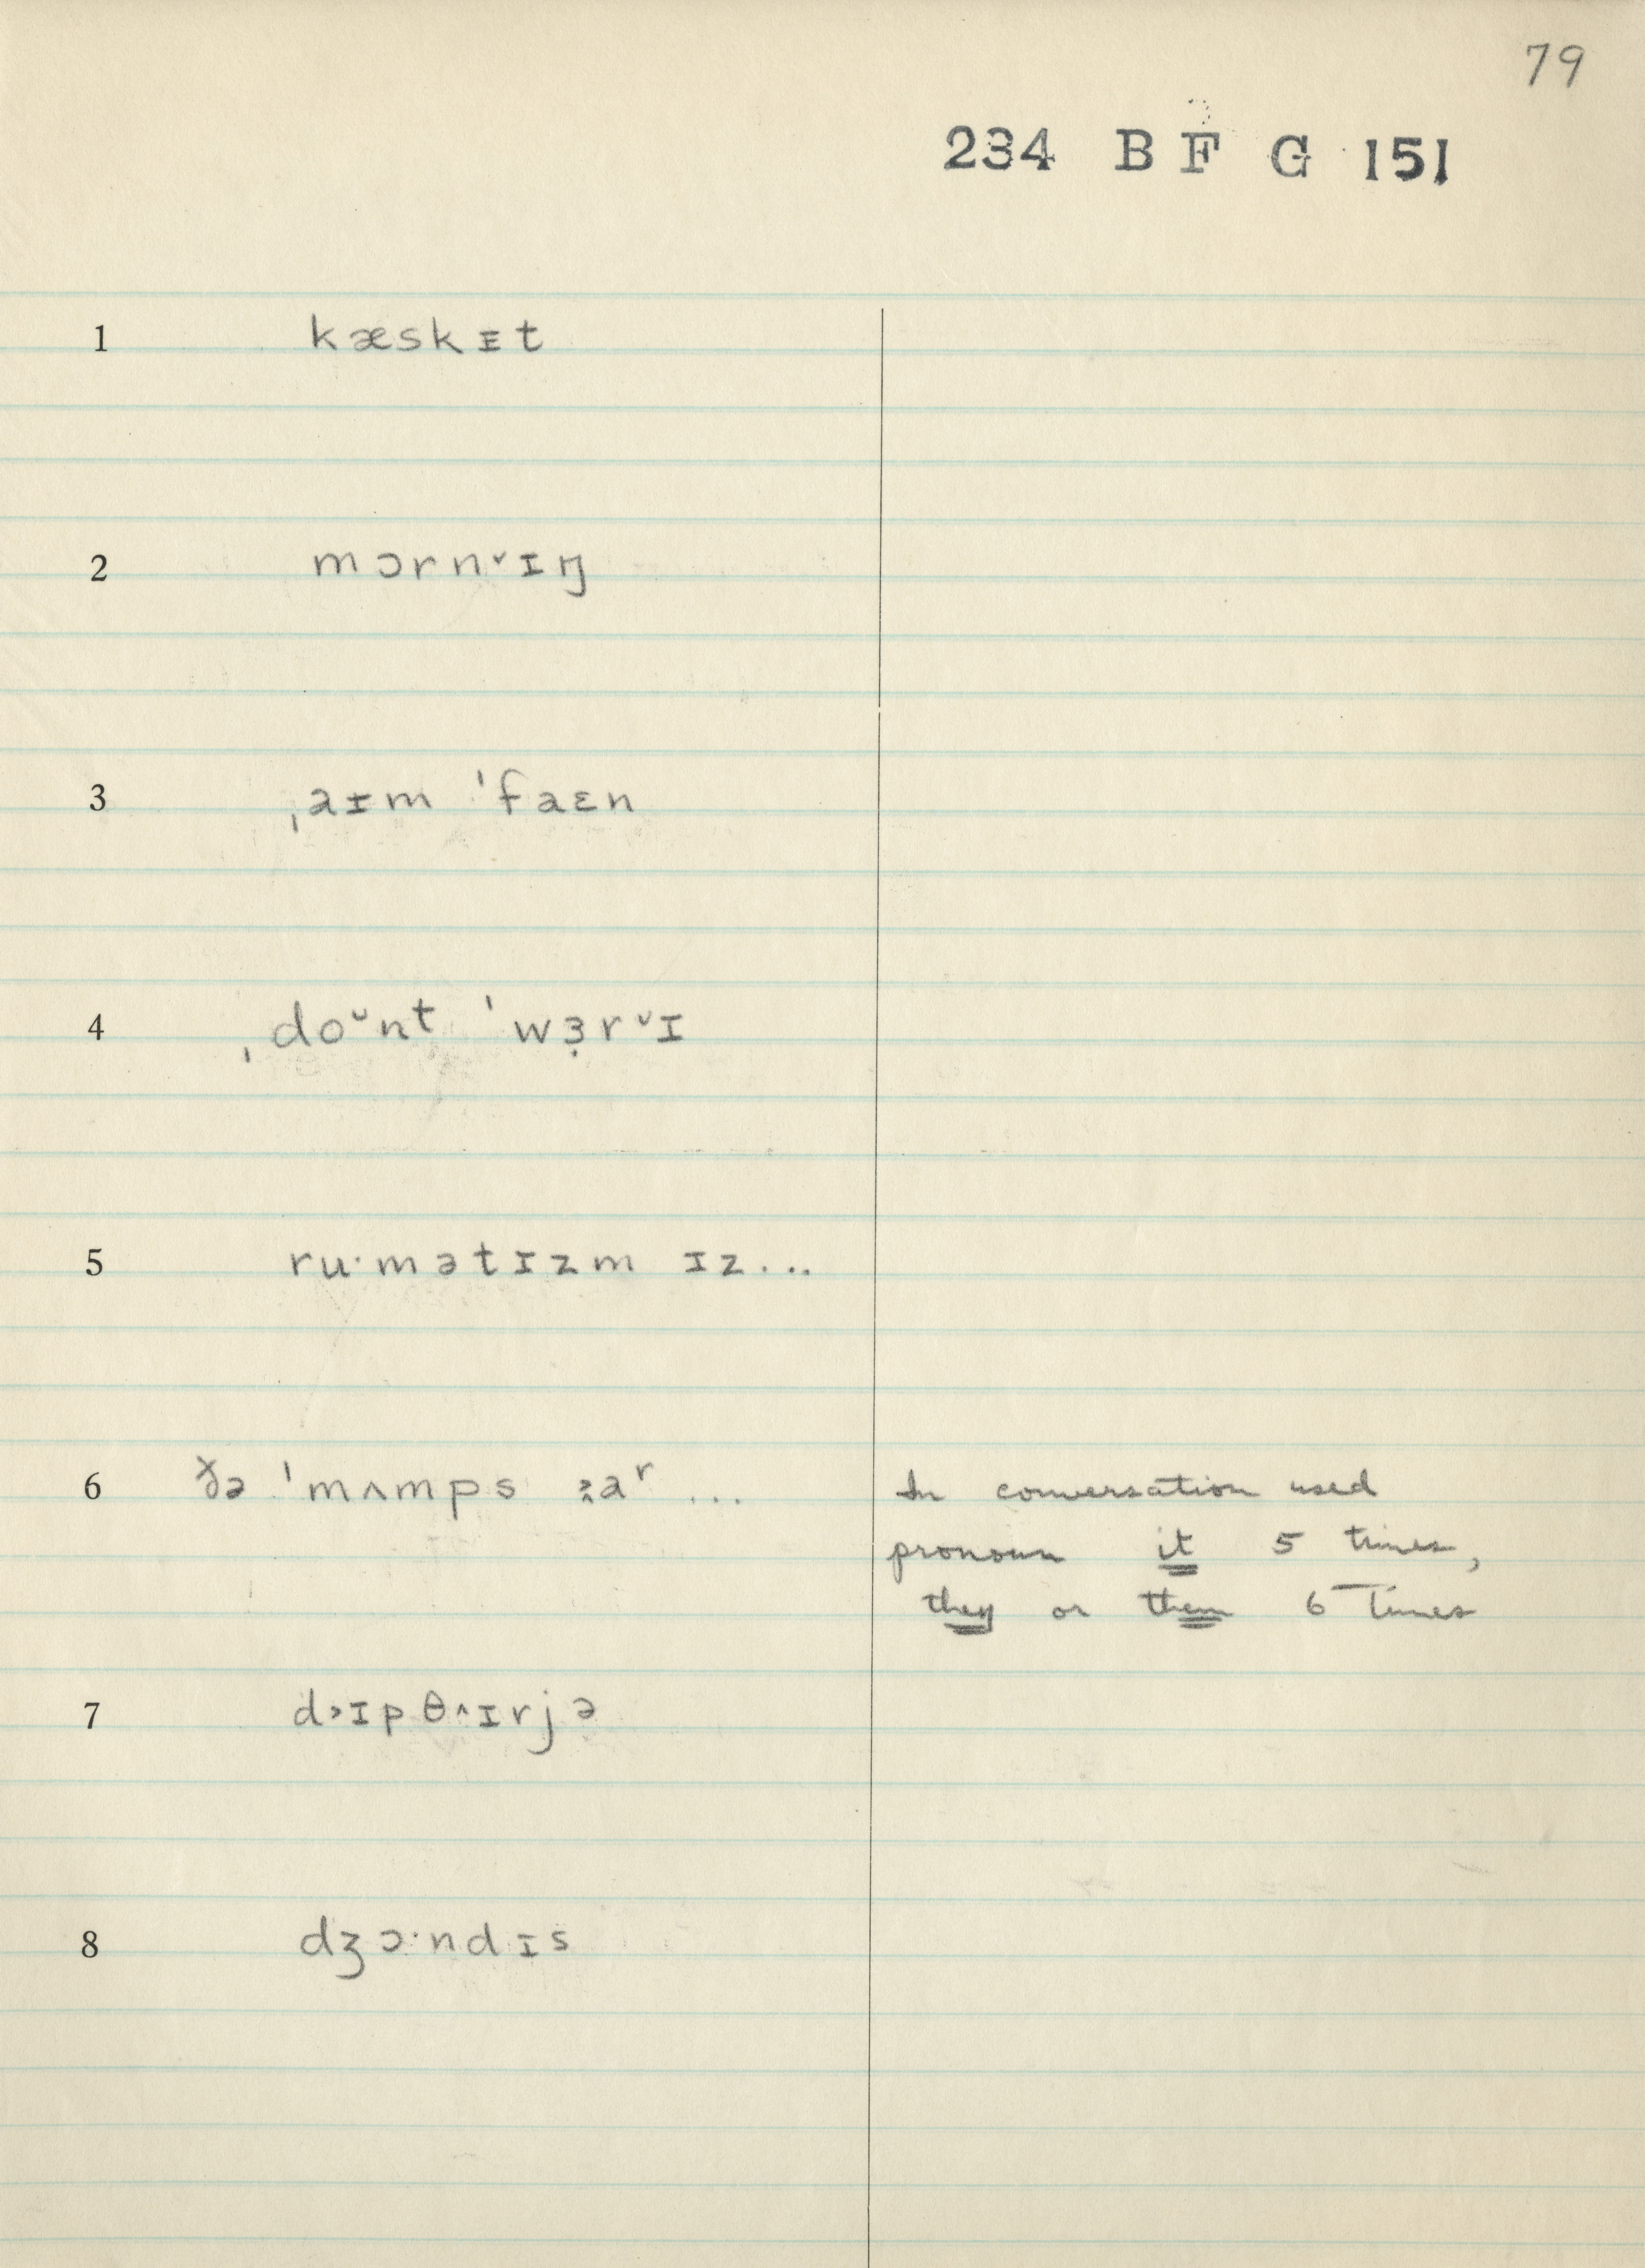 79
234 B F G 151
1 kæskᵻt
2 mɔrn˅ɪŋ
3 ˌaᵻm ˈfaɛn
4 ˌdo˘nt ˈwɜ̣r˅ɪ
5 ru·mətɪzm ɪz...
6 ðə ˈmʌmps aʳ ...
In conversation used
pronoun it 5 times,
they or them 6 times
7 d˃ɪpθ˄ɪrjə
8 dʒɔ·ndɪs